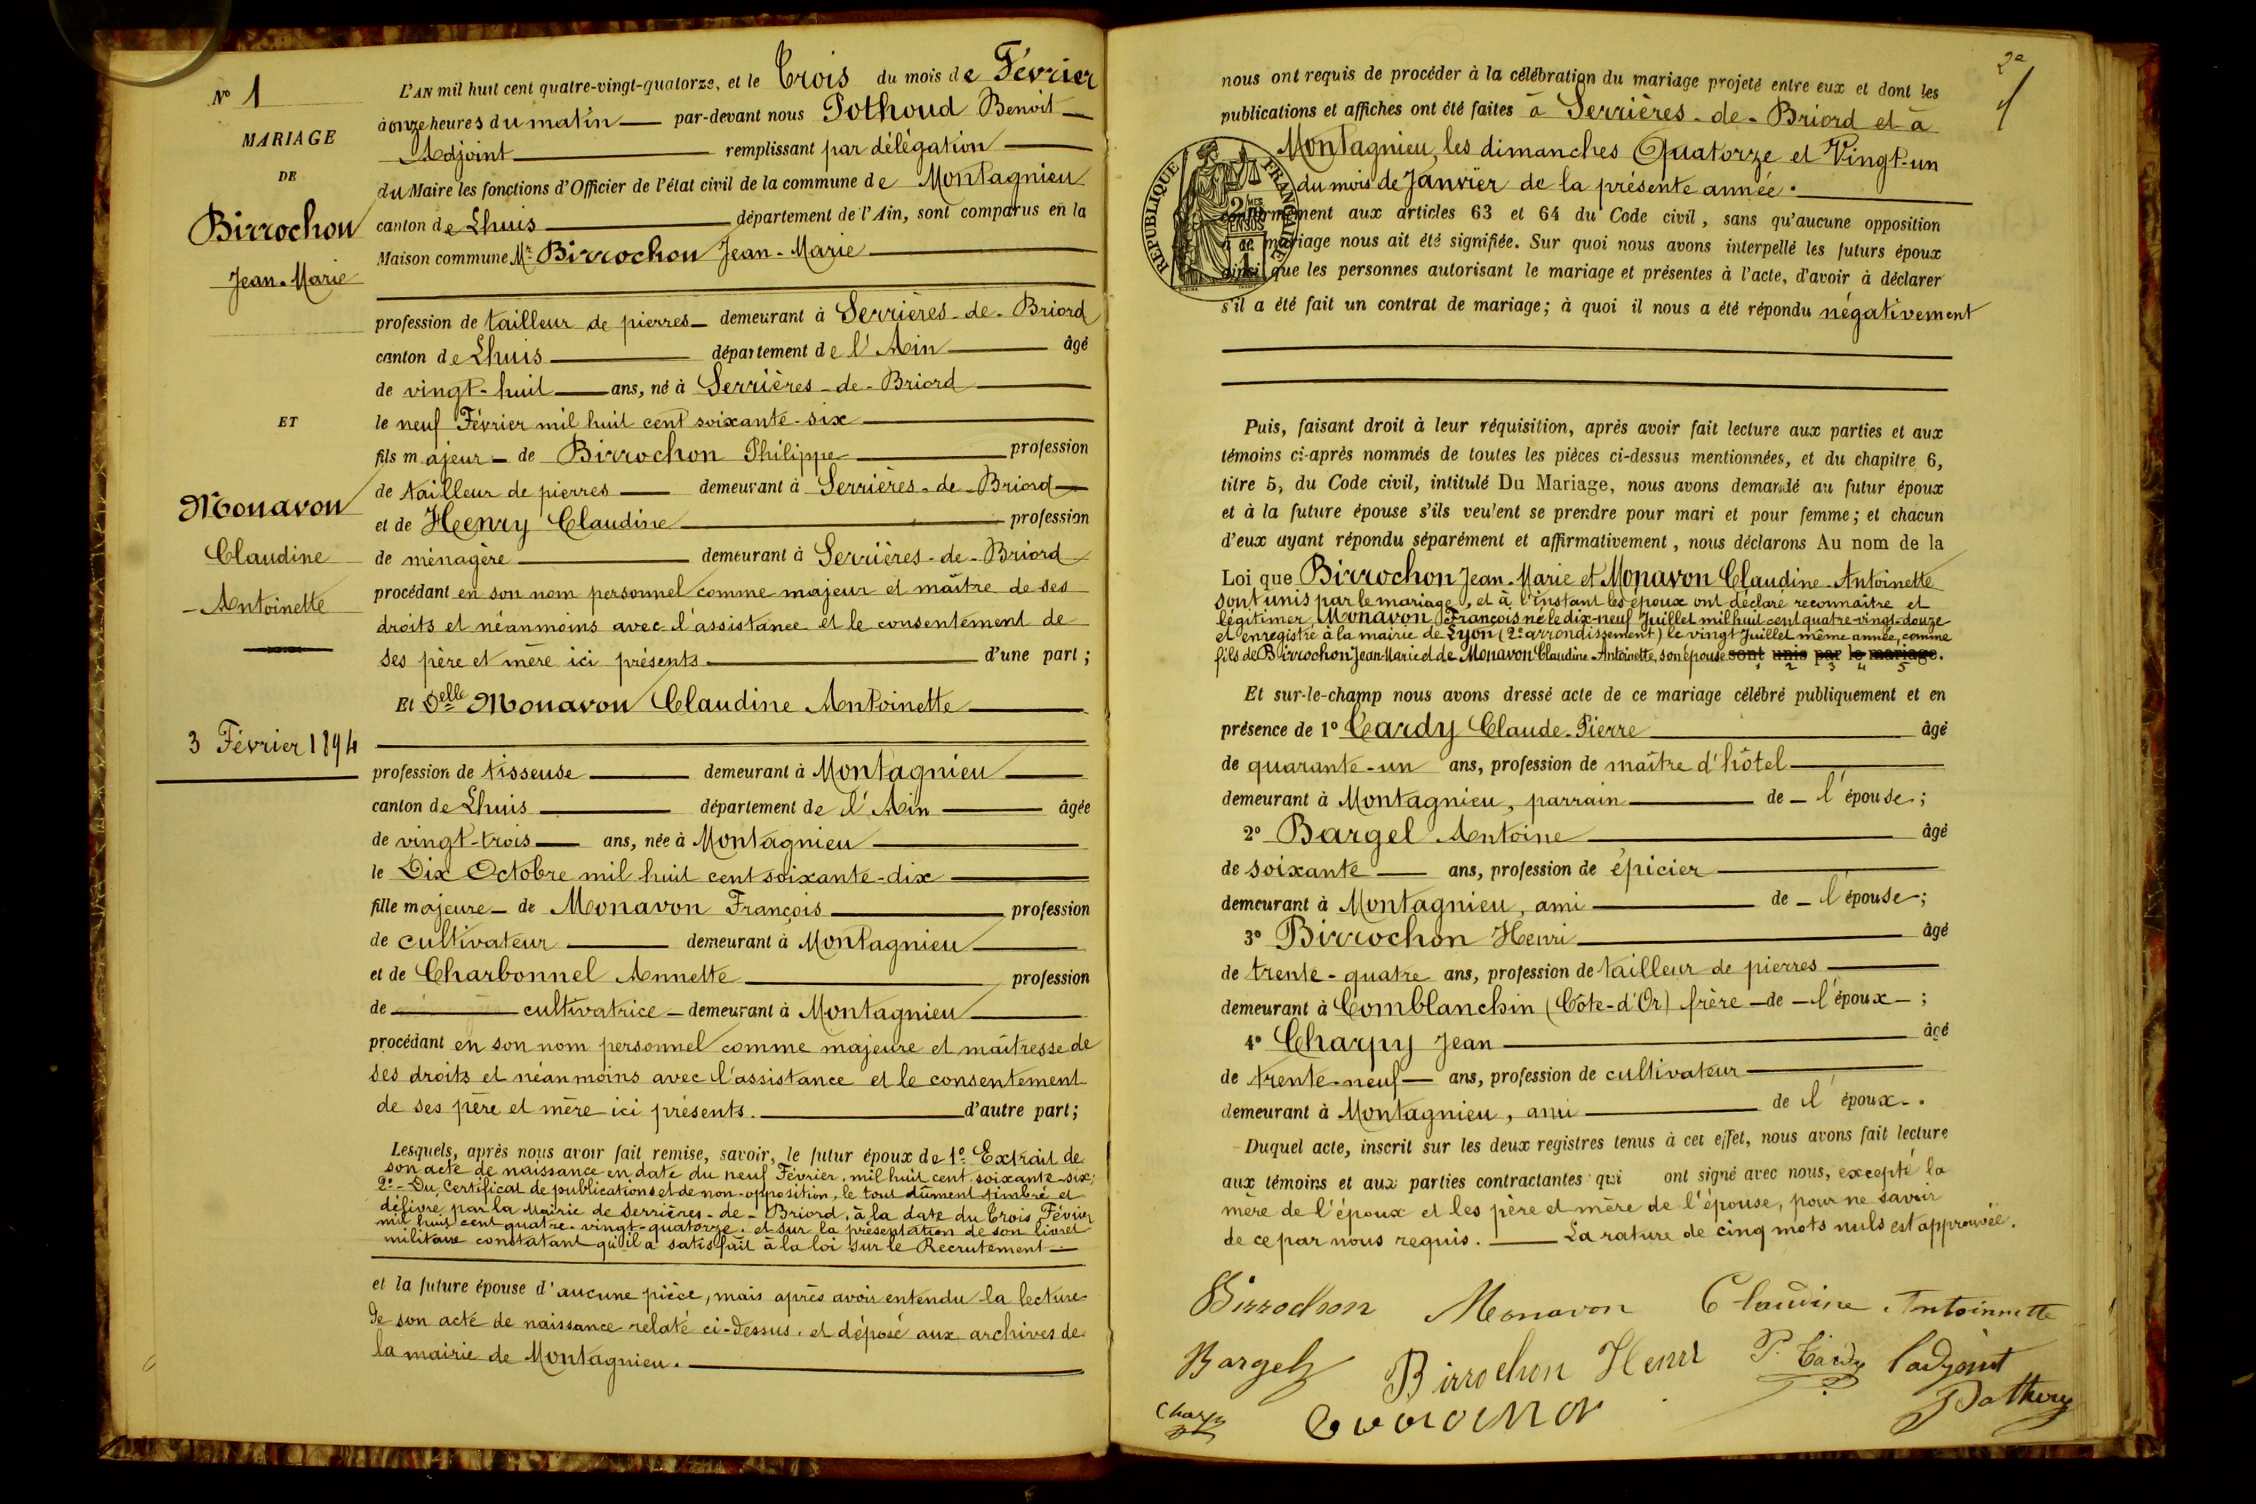 N° 1
MARIAGE
DE
Birrochon
Jean-Marie
ET
Monavon
Claudine
Antoinette
3 Février 1894
L'AN mil huit cent quatre-vingt-quatorze, et le Trois du mois de Février
à onze heures du matin par-devant nous Pothoud Benoit
Adjoint remplissant par délégation
du Maire les fonctions d'Officier de l'état civil de la commune de Montagnieu
canton de Lhuis département de l'Ain, sont comparus en la
Maison commune Mr Birrochon Jean-Marie
profession de tailleur de pierres demeurant à Serrières-de-Briord
canton de Lhuis département de l'Ain âgé
de vingt-huit ans, né à Serrières-de-Briord
le neuf Février mil huit cent soixante-six
fils majeur de Birrochon Philippe profession
de tailleur de pierres demeurant à Serrières-de-Briord
et de Henry Claudine profession
de ménagère demeurant à Serrières-de-Briord
procédant en son nom personnel comme majeur et maître de ses
droits et néanmoins avec l'assistance et le consentement de
ses père et mère ici présents d'une part;
Et Delle Monavon Claudine Antoinette
profession de tisseuse demeurant à Montagnieu
canton de Lhuis département de l'Ain âgée
de vingt-trois ans, née à Montagnieu
le Dix Octobre mil huit cent soixante-dix
fille majeure de Monavon François profession
de cultivateur demeurant à Montagnieu
et de Charbonnel Annette profession
de cultivatrice demeurant à Montagnieu
procédant en son nom personnel comme majeure et maîtresse de
ses droits et néanmoins avec l'assistance et le consentement
de ses père et mère ici présents. d'autre part;
Lesquels, après nous avoir fait remise, savoir, le futur époux de 1° Extrait de
son acte de naissance en date du neuf Février, mil huit cent soixante-six;
2°- Du Certificat de publications et de non-opposition, le tout dûment timbré et
délivré par la Mairie de Serrières-de-Briord, à la date du Trois Février
mil huit cent quatre-vingt-quatorze. et sur la présentation de son livret
militaire constatant qu'il a satisfait à la loi sur le Recrutement
et la future épouse d'aucune pièce, mais après avoir entendu la lecture
de son acte de naissance relaté ci-dessus, et déposé aux archives de
la mairie de Montagnieu.
2e
nous ont requis de procéder à la célébration du mariage projeté entre eux et dont les
publications et affiches ont été faites à Serrières-de-Briord et à
Montagnieu, les dimanches Quatorze et Vingt-un
du mois de Janvier de la présente année.
RÉPUBLIQUE FRANÇAISE
conformément aux articles 63 et 64 du Code civil, sans qu'aucune opposition
à ce mariage nous ait été signifiée. Sur quoi nous avons interpellé les futurs époux
ainsi que les personnes autorisant le mariage et présentes à l'acte, d'avoir à déclarer
s'il a été fait un contrat de mariage; à quoi il nous a été répondu négativement
Puis, faisant droit à leur réquisition, après avoir fait lecture aux parties et aux
témoins ci-après nommés de toutes les pièces ci-dessus mentionnées, et du chapitre 6,
titre 5, du Code civil, intitulé Du Mariage, nous avons demandé au futur époux
et à la future épouse s'ils veulent se prendre pour mari et pour femme; et chacun
d'eux ayant répondu séparément et affirmativement, nous déclarons Au nom de la
Loi que Birrochon Jean-Marie et Monavon Claudine-Antoinette
sont unis par le mariage, et à l'instant les époux ont déclaré reconnaître et
légitimer Monavon François né le dix-neuf Juillet mil huit cent quatre-vingt-douze
et enregistré à la mairie de Lyon (2e arrondissement) le vingt Juillet même année, comme
fils de Birrochon Jean-Marie et de Monavon Claudine-Antoinette, son épouse sont unis par le mariage.
1 2 3 4 5
Et sur-le-champ nous avons dressé acte de ce mariage célébré publiquement et en
présence de 1° Cardy Claude-Pierre âgé
de quarante-un ans, profession de maître d'hôtel
demeurant à Montagnieu, parrain de l'épouse;
2° Bargel Antoine âgé
de soixante ans, profession de épicier
demeurant à Montagnieu, ami de l'épouse;
3° Birrochon Henri âgé
de trente-quatre ans, profession de tailleur de pierres
demeurant à Comblanchin (Côte-d'Or) frère de l'époux;
4° Charpy Jean âgé
de trente-neuf ans, profession de cultivateur
demeurant à Montagnieu, ami de l'époux.
Duquel acte, inscrit sur les deux registres tenus à cet effet, nous avons fait lecture
aux témoins et aux parties contractantes qui ont signé avec nous, excepté la
mère de l'époux et les père et mère de l'épouse, pour ne savoir
de ce par nous requis. La rature de cinq mots nuls est approuvée.
Birrochon Monavon Claudine Antoinnette
Bargel Birrochon Henri P. Cardy l'adjoint
Charpy